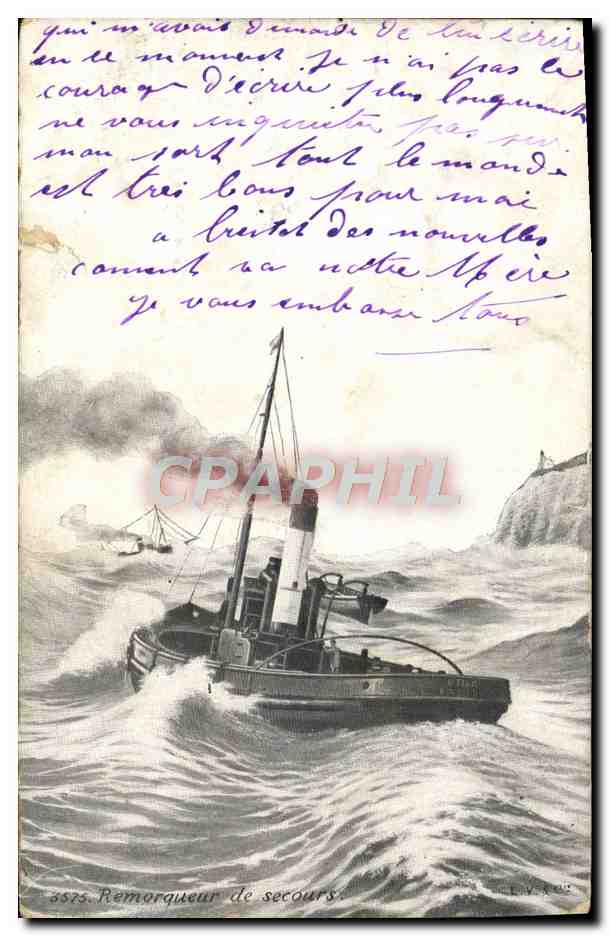 qui m'avait demandé de lui écrire
en ce moment je n'ai pas le
courage d'écrire plus longuement
ne vous inquietre pas sur
mon sort tout le monde
est tres bons pour moi
a bientot des nouvelles
coment va notre Mère
je vous embrasse tous
CPAPHIL
5575. Remorqueur de secours.
L. V. & Cie